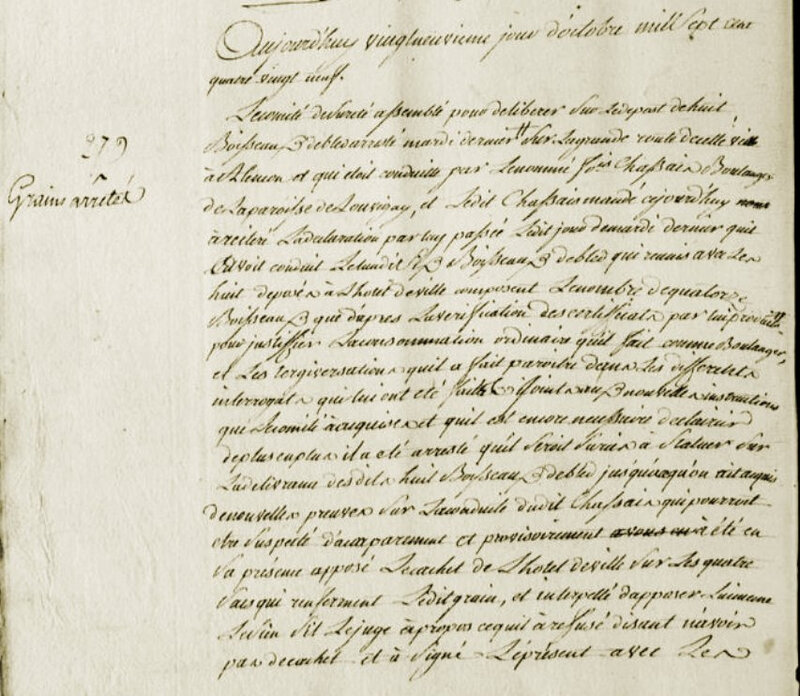 Aujourdhuy vingtneuvieme jour d'octobre mill Sept cent
quatre vingt neuf.
Lecomité desureté assemblé pour deliberer sur ledepost dehuit
279
Boisseaux debled arresté mardi dernier sur Lagrande route decette ville
à Alencon et qui etoit conduitte par Lenommé fois Chassais Boulanger
Grains arrêtés
de Laparoisse de Louvigny, et Ledit Chassais mandé cejourdhuy
à réitéré Ladeclaration par luy passée Ledit jour demardi dernier quil
avoit conduit Lelundi six Boisseaux debled qui reunis avec Les
huit deposés à L'hotel deville composent Lenombre dequatorze
Boisseaux que dapres Laverification des certificats par lui produits
pour justiffier Laconsommation ordinaire quil fait comme Boulanger,
et Les tergiversations quil a fait paroitre dans Les differents
interrogats qui lui ont été faits joint aux nouvelles instructions
que Lecomité à acquises et quil est encore necessaire declaircir
deplus enplus il a été arresté quil seroit sursis à Statuer sur
Ladelivrance desdits huit Boisseaux debled jusquacequon ait acquis
denouvelles preuves sur Laconduite dudit Chassais qui pourroit
etre suspecté d'accaparement et provisoirement avons en à été en
sa présence apposé Lecachet de L'hotel deville sur Les quatre
sacs qui renferment Ledit grain, et interpellé dapposer Luimeme
Lesien sil Lejuge àpropos cequil à refusé disant n'avoir
pas decachet et à signé Leprésent avec Les